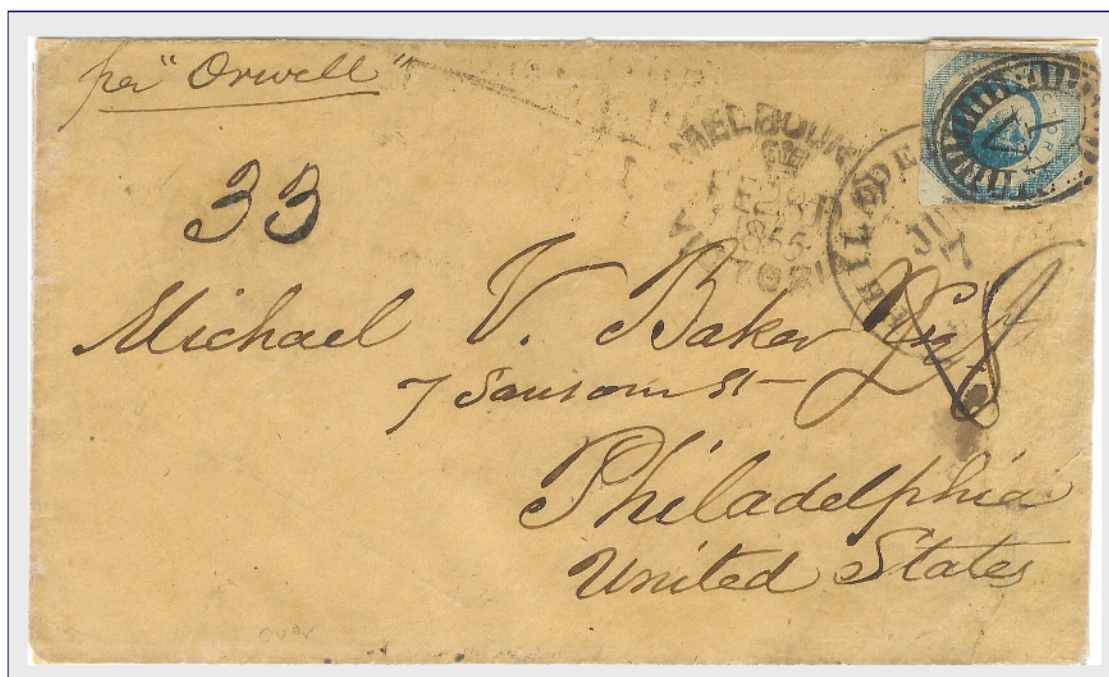 per "Orwell"
MELBOURNE
FE 28
1855
VICTORIA
PHILADE
JUN
17
VICTORIA
33
Michael V. Baker Esq
7 Sansom St
Philadelphia
United States